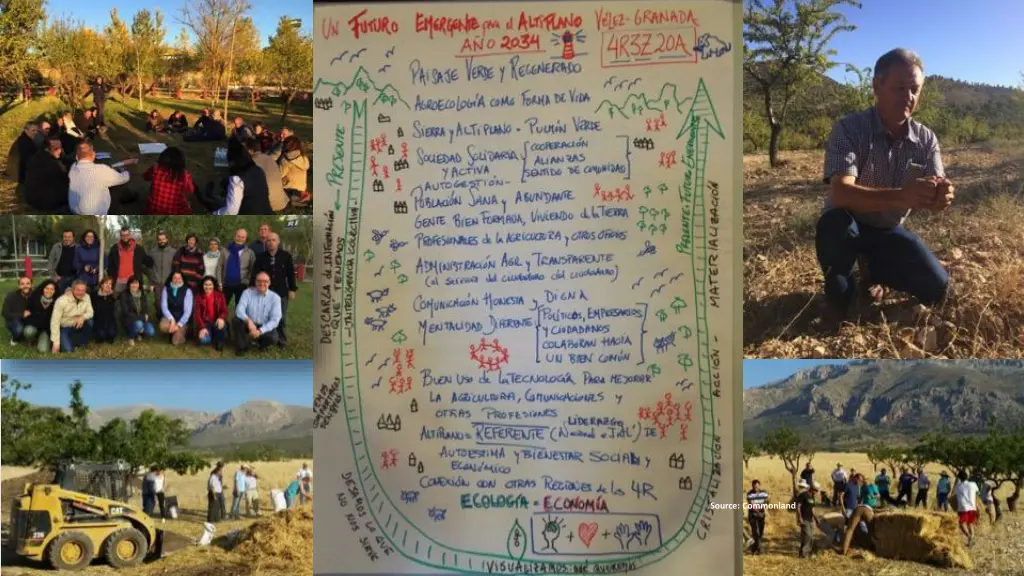 UN FUTURO EMERGENTE para el ALTIPLANO VÉLEZ-GRANADA
AÑO 2034
4R3Z20A
PAISAJE VERDE Y REGENERADO
AGROECOLOGÍA COMO FORMA DE VIDA
SIERRA Y ALTIPLANO = PULMÓN VERDE
SOCIEDAD SOLIDARIA Y ACTIVA
COOPERACIÓN
ALIANZAS
SENTIDO DE COMUNIDAD
AUTOGESTIÓN-
POBLACIÓN SANA Y ABUNDANTE
GENTE BIEN FORMADA, VIVIENDO de la TIERRA
PROFESIONALES de la AGRICULTURA Y OTROS OFICIOS
ADMINISTRACIÓN AGIL Y TRANSPARENTE
(al servicio del ciudadano
COMUNICACIÓN HONESTA Y DIGNA
MENTALIDAD DIFERENTE
POLÍTICOS, EMPRESARIOS
Y CIUDADANOS
COLABORAN HACIA
UN BIEN COMÚN
BUEN USO de la TECNOLOGÍA PARA MEJORAR
LA AGRICULTURA, COMUNICACIONES Y
OTRAS PROFESIONES
LIDERAZGO
ALTIPLANO = REFERENTE (Nacional e Int'l) DE
AUTOESTIMA Y BIENESTAR SOCIAL Y
ECONÓMICO
CONEXIÓN CON OTRAS REGIONES de las 4R
ECOLOGÍA = ECONOMÍA
+ +
← PRESENTE
DESCARGA de INFORMACIÓN
QUE TENEMOS
- INTELIGENCIA COLECTIVA -
DEJAMOS LA QUE
NO NOS SIRVE
VISUALIZAMOS
CRISTALIZACIÓN - ACCIÓN - MATERIALIZACIÓN
PRESENTE = FUTURO EMERGENTE
Source: Commonland